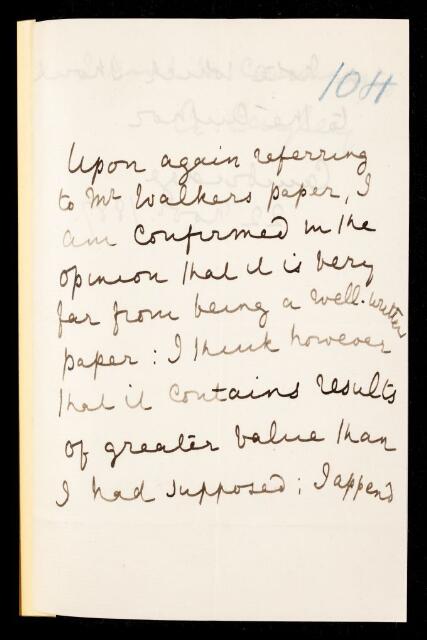 104
Upon again referring
to Mr Walkers paper, I
am confirmed in the
opinion that it is very
far from being a well-written
paper: I think however
that it contains results
of greater value than
I had supposed; I append